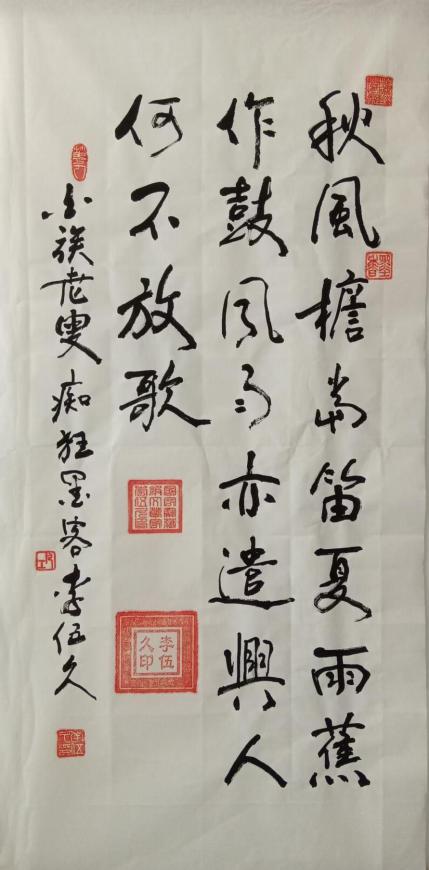 秋風檐當笛夏雨蕉
作鼓風雨亦遣興人
何不放歌
族老叟痴狂墨客李伍久
李伍久印